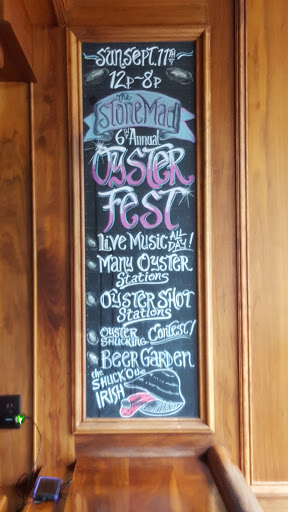 Sun. Sept. 11TH
12P-8P
The
Stone Mad
6TH Annual
Oyster
Fest
Live Music All Day!
Many Oyster
Stations
Oyster Shot
Stations
Oyster Shucking Contest!
Beer Garden
the
Shuck Out
Irish